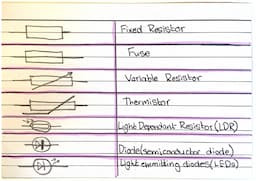 Fixed Resistor
Fuse
Variable Resistor
Thermistor
Light Dependant Resistor (LDR)
Diode (semiconductor diode)
Light emmiting diodes (LEDs)